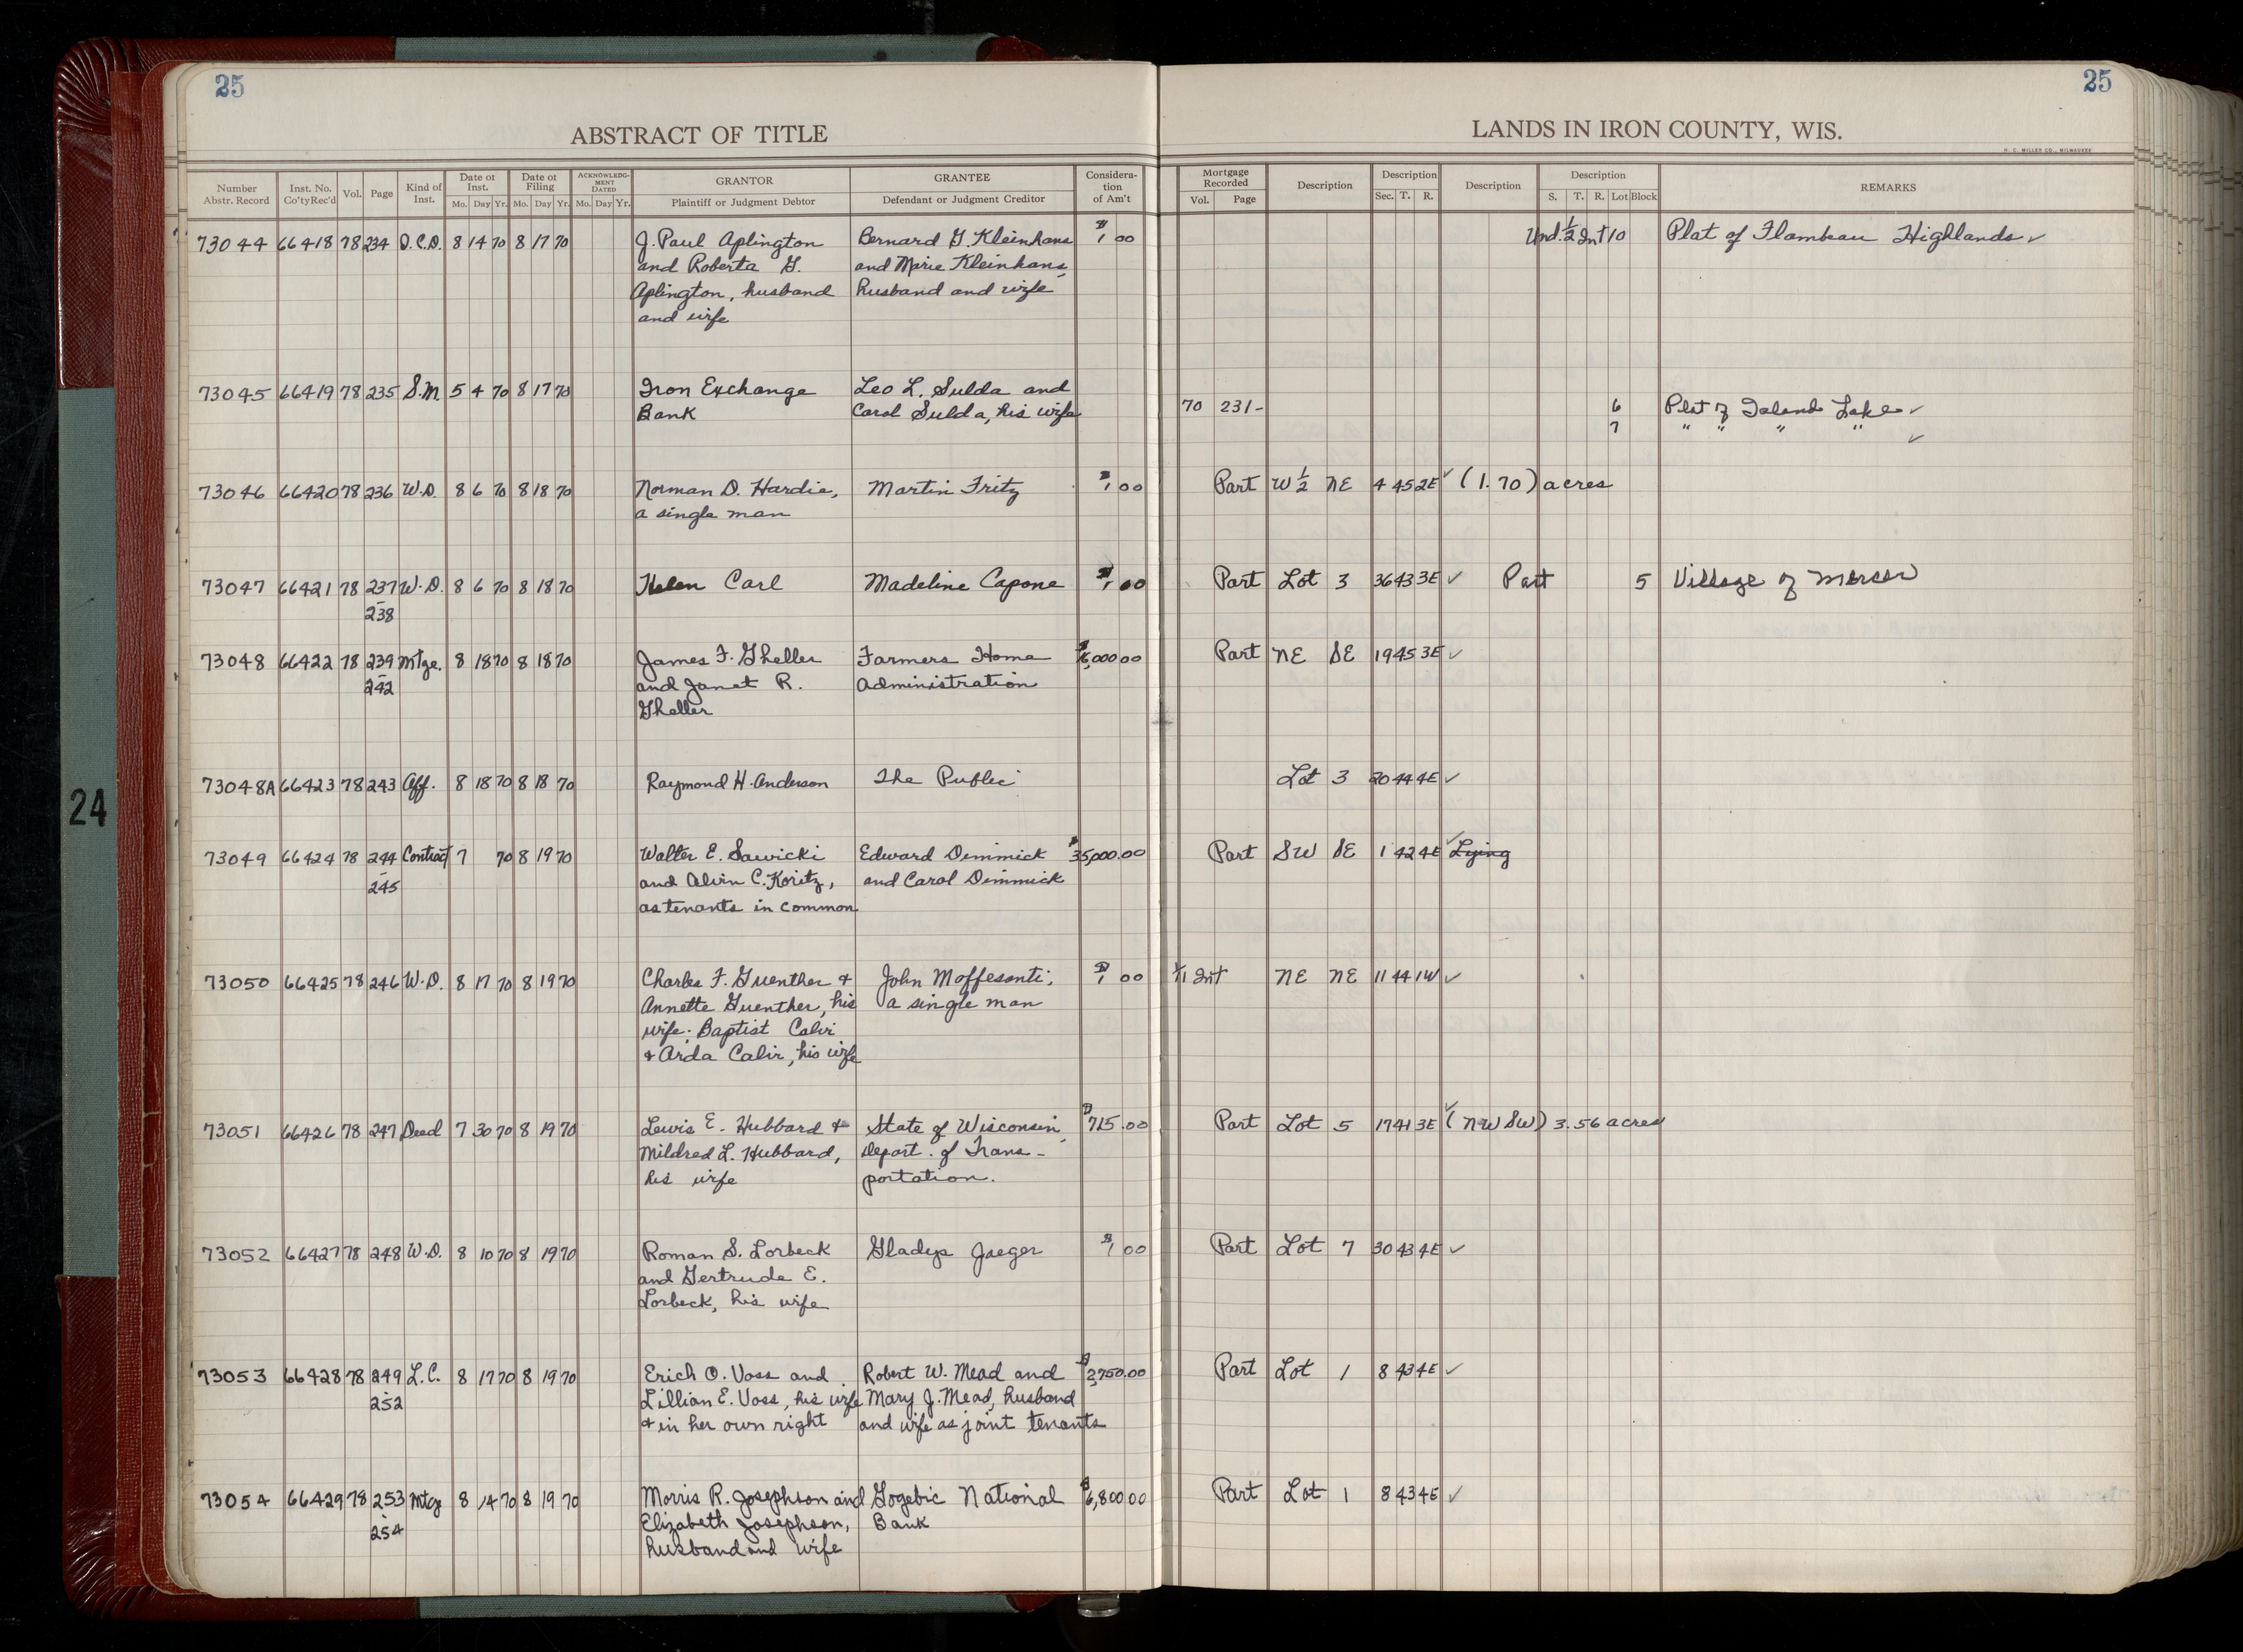 25
25
ABSTRACT OF TITLE
LANDS IN IRON COUNTY, WIS.
H. C. MILLER CO., MILWAUKEE
Number Abstr. Record Inst. No. Co'ty Rec'd Vol. Page Kind of Inst. Date of Inst. Mo. Day Yr. Date of Filing Mo. Day Yr. ACKNOWLEDGMENT DATED Mo. Day Yr. GRANTOR Plaintiff or Judgment Debtor GRANTEE Defendant or Judgment Creditor Consideration of Am't Mortgage Recorded Vol. Page Description Description Sec. T. R. Description Description S. T. R. Lot Block REMARKS
73044 66418 78 234 Q.C.D. 8 14 70 8 17 70 J. Paul Aplington Bernard G. Kleinhans $1 00 Und. 1/2 Int 10 Plat of Flambeau Highlands ✓
and Roberta G. and Marie Kleinhans,
Aplington, husband husband and wife
and wife
73045 66419 78 235 S.M. 5 4 70 8 17 70 Iron Exchange Leo L. Sulda and
Bank Carol Sulda, his wife 70 231- 6 Plat of Island Lake ✓
7 " " " " ✓
73046 66420 78 236 W.D. 8 6 70 8 18 70 Norman D. Hardie, Martin Fritz $1 00 Part W 1/2 NE 4 45 2E ✓ (1.70) acres
a single man
73047 66421 78 237 W.D. 8 6 70 8 18 70 Helen Carl Madeline Capone $1 00 Part Lot 3 36 43 3E ✓ Part 5 Village of Mercer
-238
73048 66422 78 239 Mtge. 8 18 70 8 18 70 James F. Gheller Farmers Home $ ,000 00 Part NE SE 19 45 3E ✓
-242 and Janet R. Administration
Gheller
73048A 66423 78 243 Aff. 8 18 70 8 18 70 Raymond H. Anderson The Public Lot 3 20 44 4E ✓
24
73049 66424 78 244 Contract 7 70 8 19 70 Walter E. Sawicki Edward Dimmick $35,000.00 Part SW SE 1 42 4E ✓ Lying
-245 and Alvin C. Koritz, and Carol Dimmick
as tenants in common
73050 66425 78 246 W.D. 8 17 70 8 19 70 Charles F. Guenther + John Moffesanti, $1 00 1/11 Int NE NE 11 44 1W ✓
Annette Guenther, his a single man
wife; Baptist Calvi
+ Arda Calvi, his wife
73051 66426 78 247 Deed 7 30 70 8 19 70 Lewis E. Hubbard + State of Wisconsin, $715.00 Part Lot 5 17 41 3E ✓ (NW SW) 3.56 acres
Mildred L. Hubbard, Depart. of Trans-
his wife portation.
73052 66427 78 248 W.D. 8 10 70 8 19 70 Roman S. Lorbeck Gladys Jaeger $1 00 Part Lot 7 30 43 4E ✓
and Gertrude E.
Lorbeck, his wife
73053 66428 78 249 L.C. 8 17 70 8 19 70 Erich O. Voss and Robert W. Mead and $2,750.00 Part Lot 1 8 43 4E ✓
-252 Lillian E. Voss, his wife Mary J. Mead, husband
+ in her own right and wife as joint tenants
73054 66429 78 253 Mtge 8 14 70 8 19 70 Morris R. Josephson and Gogebic National $6,800.00 Part Lot 1 8 43 4E ✓
-254 Elizabeth Josephson, Bank
husband and wife